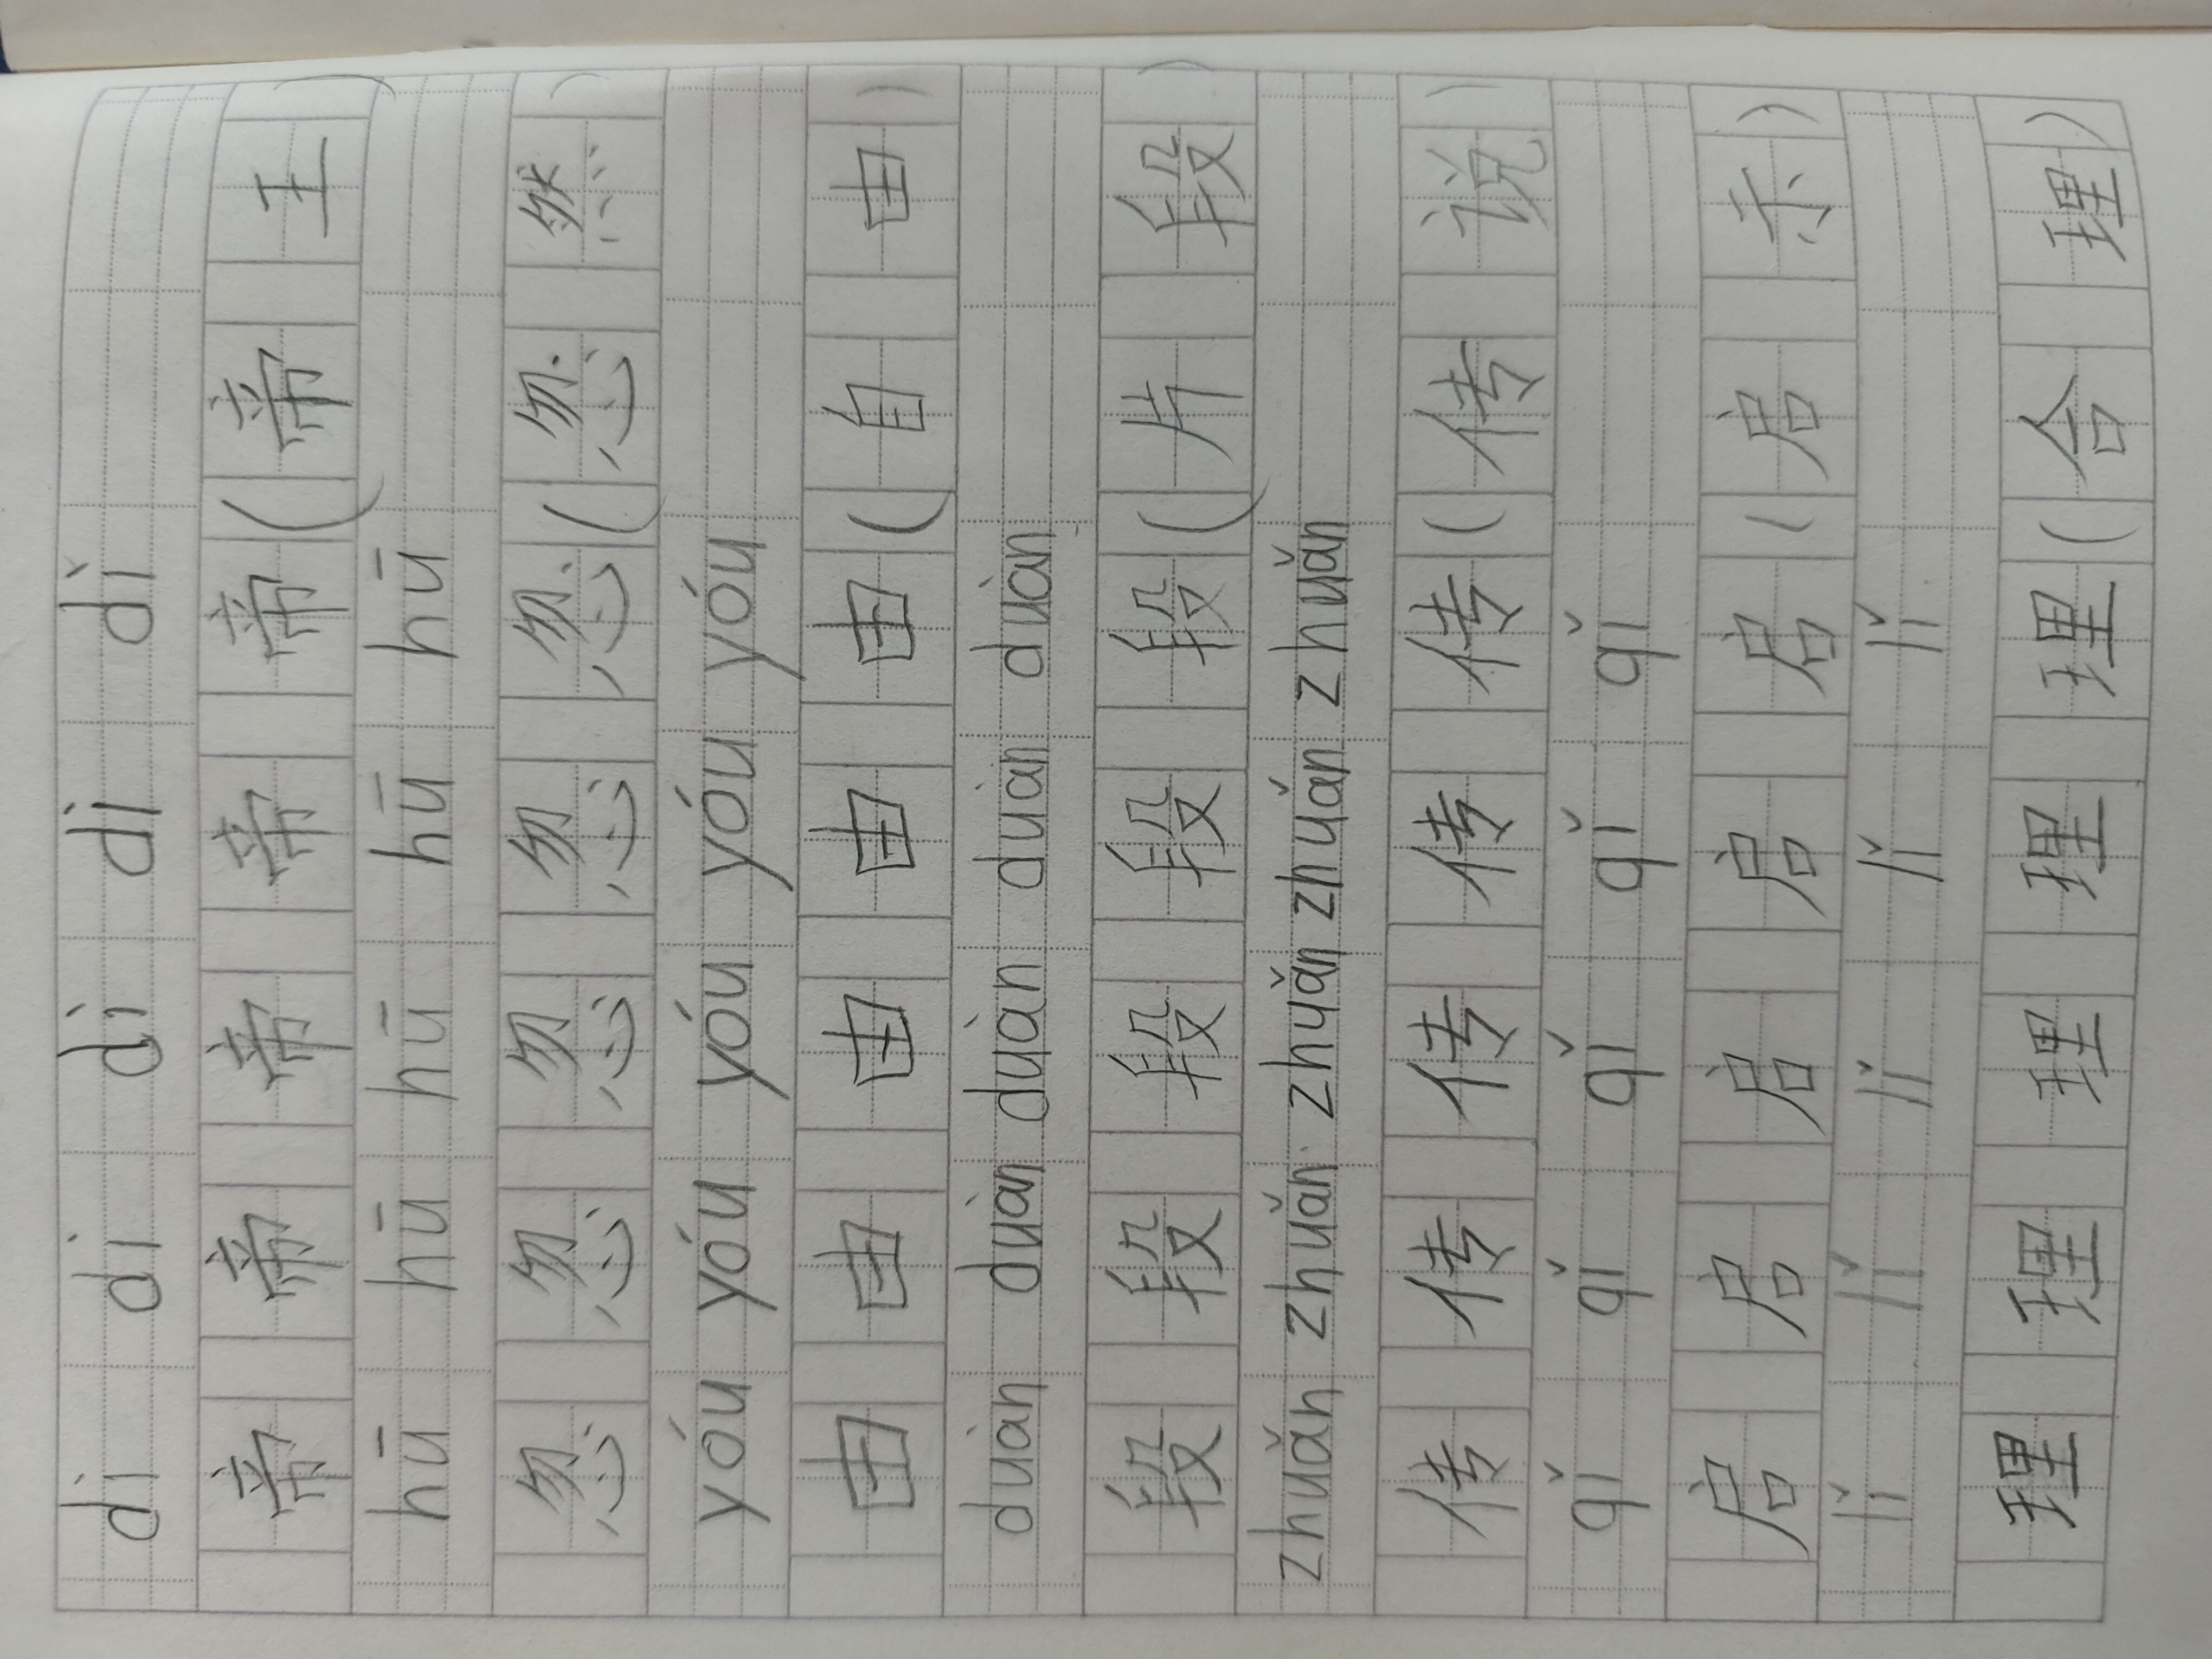 dì dì dì dì dǐ
帝 帝 帝 帝 帝 (帝 王)
hū hū hū hū hū
忽 忽 忽 忽 忽 (忽 然)
yóu yóu yóu yóu yóu
由 由 由 由 由 (自 由)
duàn duàn duàn duàn duàn
段 段 段 段 段 (片 段)
zhuǎn zhuǎn zhuǎn zhuán zhuǎn
传 传 传 传 传 (传 说)
qǐ qǐ qǐ qǐ qǐ
启 启 启 启 启 (启 示)
lǐ lǐ lǐ lǐ lǐ
理 理 理 理 理 (合 理)